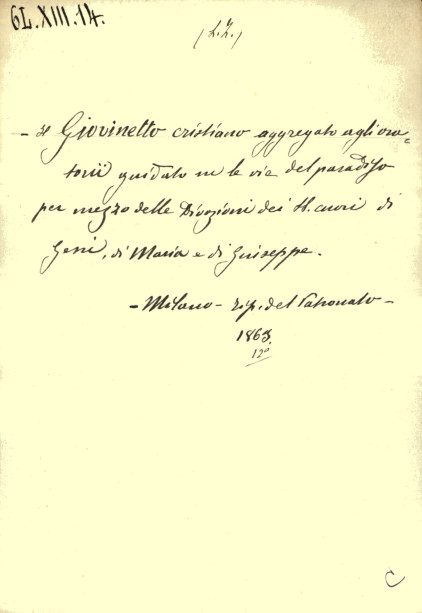 6L.XIII.14.
(L.Z.)
- Il Giovinetto cristiano aggregato agli ora=
torii guidato in le vie del paradiso
per mezzo delle Divozioni dei SS. cuori di
Gesù, di Maria e di Guiseppe.
- Milano - tip. del Patronato -
1863.
12º
C